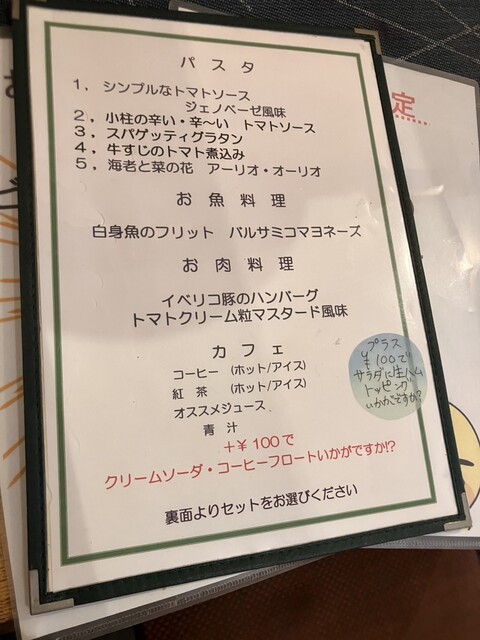 パスタ
1，シンプルなトマトソース
ジェノベーゼ風味
2，小柱の辛い・辛～い トマトソース
3，スパゲッティグラタン
4，牛すじのトマト煮込み
5，海老と菜の花 アーリオ・オーリオ
お魚料理
白身魚のフリット バルサミコマヨネーズ
お肉料理
イベリコ豚のハンバーグ
トマトクリーム粒マスタード風味
カフェ
コーヒー (ホット/アイス)
紅茶 (ホット/アイス)
オススメジュース
青汁
＋¥100で
クリームソーダ・コーヒーフロートいかがですか!?
裏面よりセットをお選びください
プラス
¥100で
サラダに生ハム
トッピング
いかがですか?
定